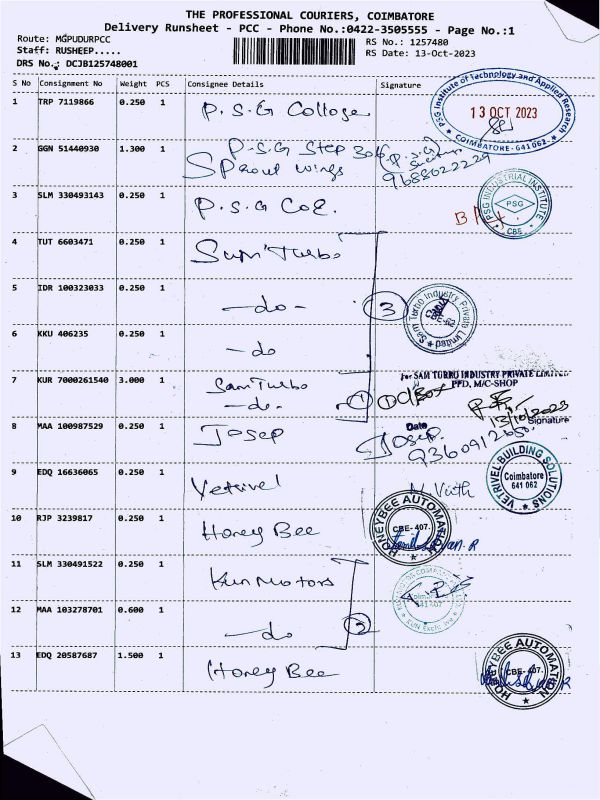 THE PROFESSIONAL COURIERS, COIMBATORE
Delivery Runsheet - PCC - Phone No.:0422-3505555 - Page No.:1
Route: MGPUDURPCC
RS No.: 1257480
Staff: RUSHEEP.....
RS Date: 13-Oct-2023
DRS No.: DCJB125748001
S No Consignment No Weight PCS Consignee Details Signature
1 TRP 7119866 0.250 1 P.S.G College
PSG Institute of Technology and Applied Research
13 OCT 2023
COIMBATORE-641 062
2 GGN 51440930 1.300 1 P.S.G Step 306
Sprout wings
9688022229
3 SLM 330493143 0.250 1 P.S.G COE.
PSG INDUSTRIAL INSTITUTE
PSG
CBE
4 TUT 6603471 0.250 1 Sam Turbo
5 IDR 100323033 0.250 1 -do- 3
Sam Turbo Industry Private Limited
6 KKU 406235 0.250 1 -do
7 KUR 7000261540 3.000 1 Sam Turbo
-do- 1 1 C/Box
For SAM TURBO INDUSTRY PRIVATE LIMITED
PPD, M/C-SHOP
13/10/2023
Date Signature
8 MAA 100987529 0.250 1 Josep Josep.
9360912650
9 EDQ 16636065 0.250 1 Vetrivel
VETRIVEL BUILDING SOLUTIONS
Coimbatore
641 062
10 RJP 3239817 0.250 1 Honey Bee
HONEYBEE AUTOMATION
CBE-407.
11 SLM 330491522 0.250 1 Kun Motors
12 MAA 103278701 0.600 1 -do 2
13 EDQ 20587687 1.500 1 Honey Bee
HONEYBEE AUTOMATION
CBE-407.